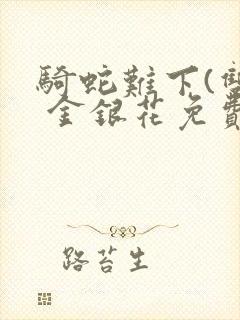 騎蛇難下(雙
金銀花免費
路苔生